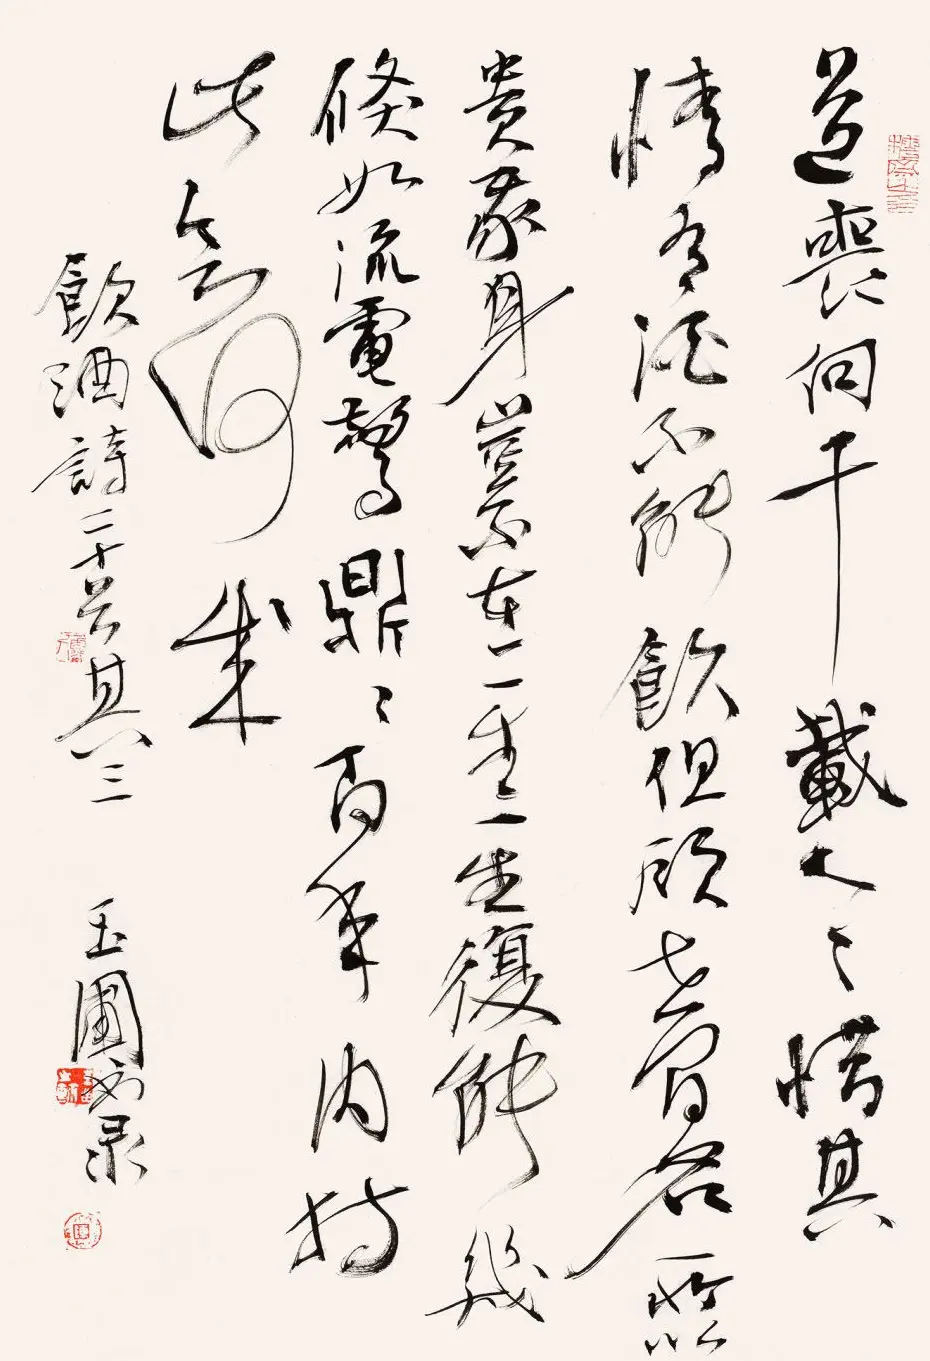 道喪向千載人々惜其
情有酒不能飲但顧世間名所以
貴我身豈不在一生一生復能幾
倏如流電驚鼎々百年內持
此欲何成
飲酒詩二十首其三
玉圃書录